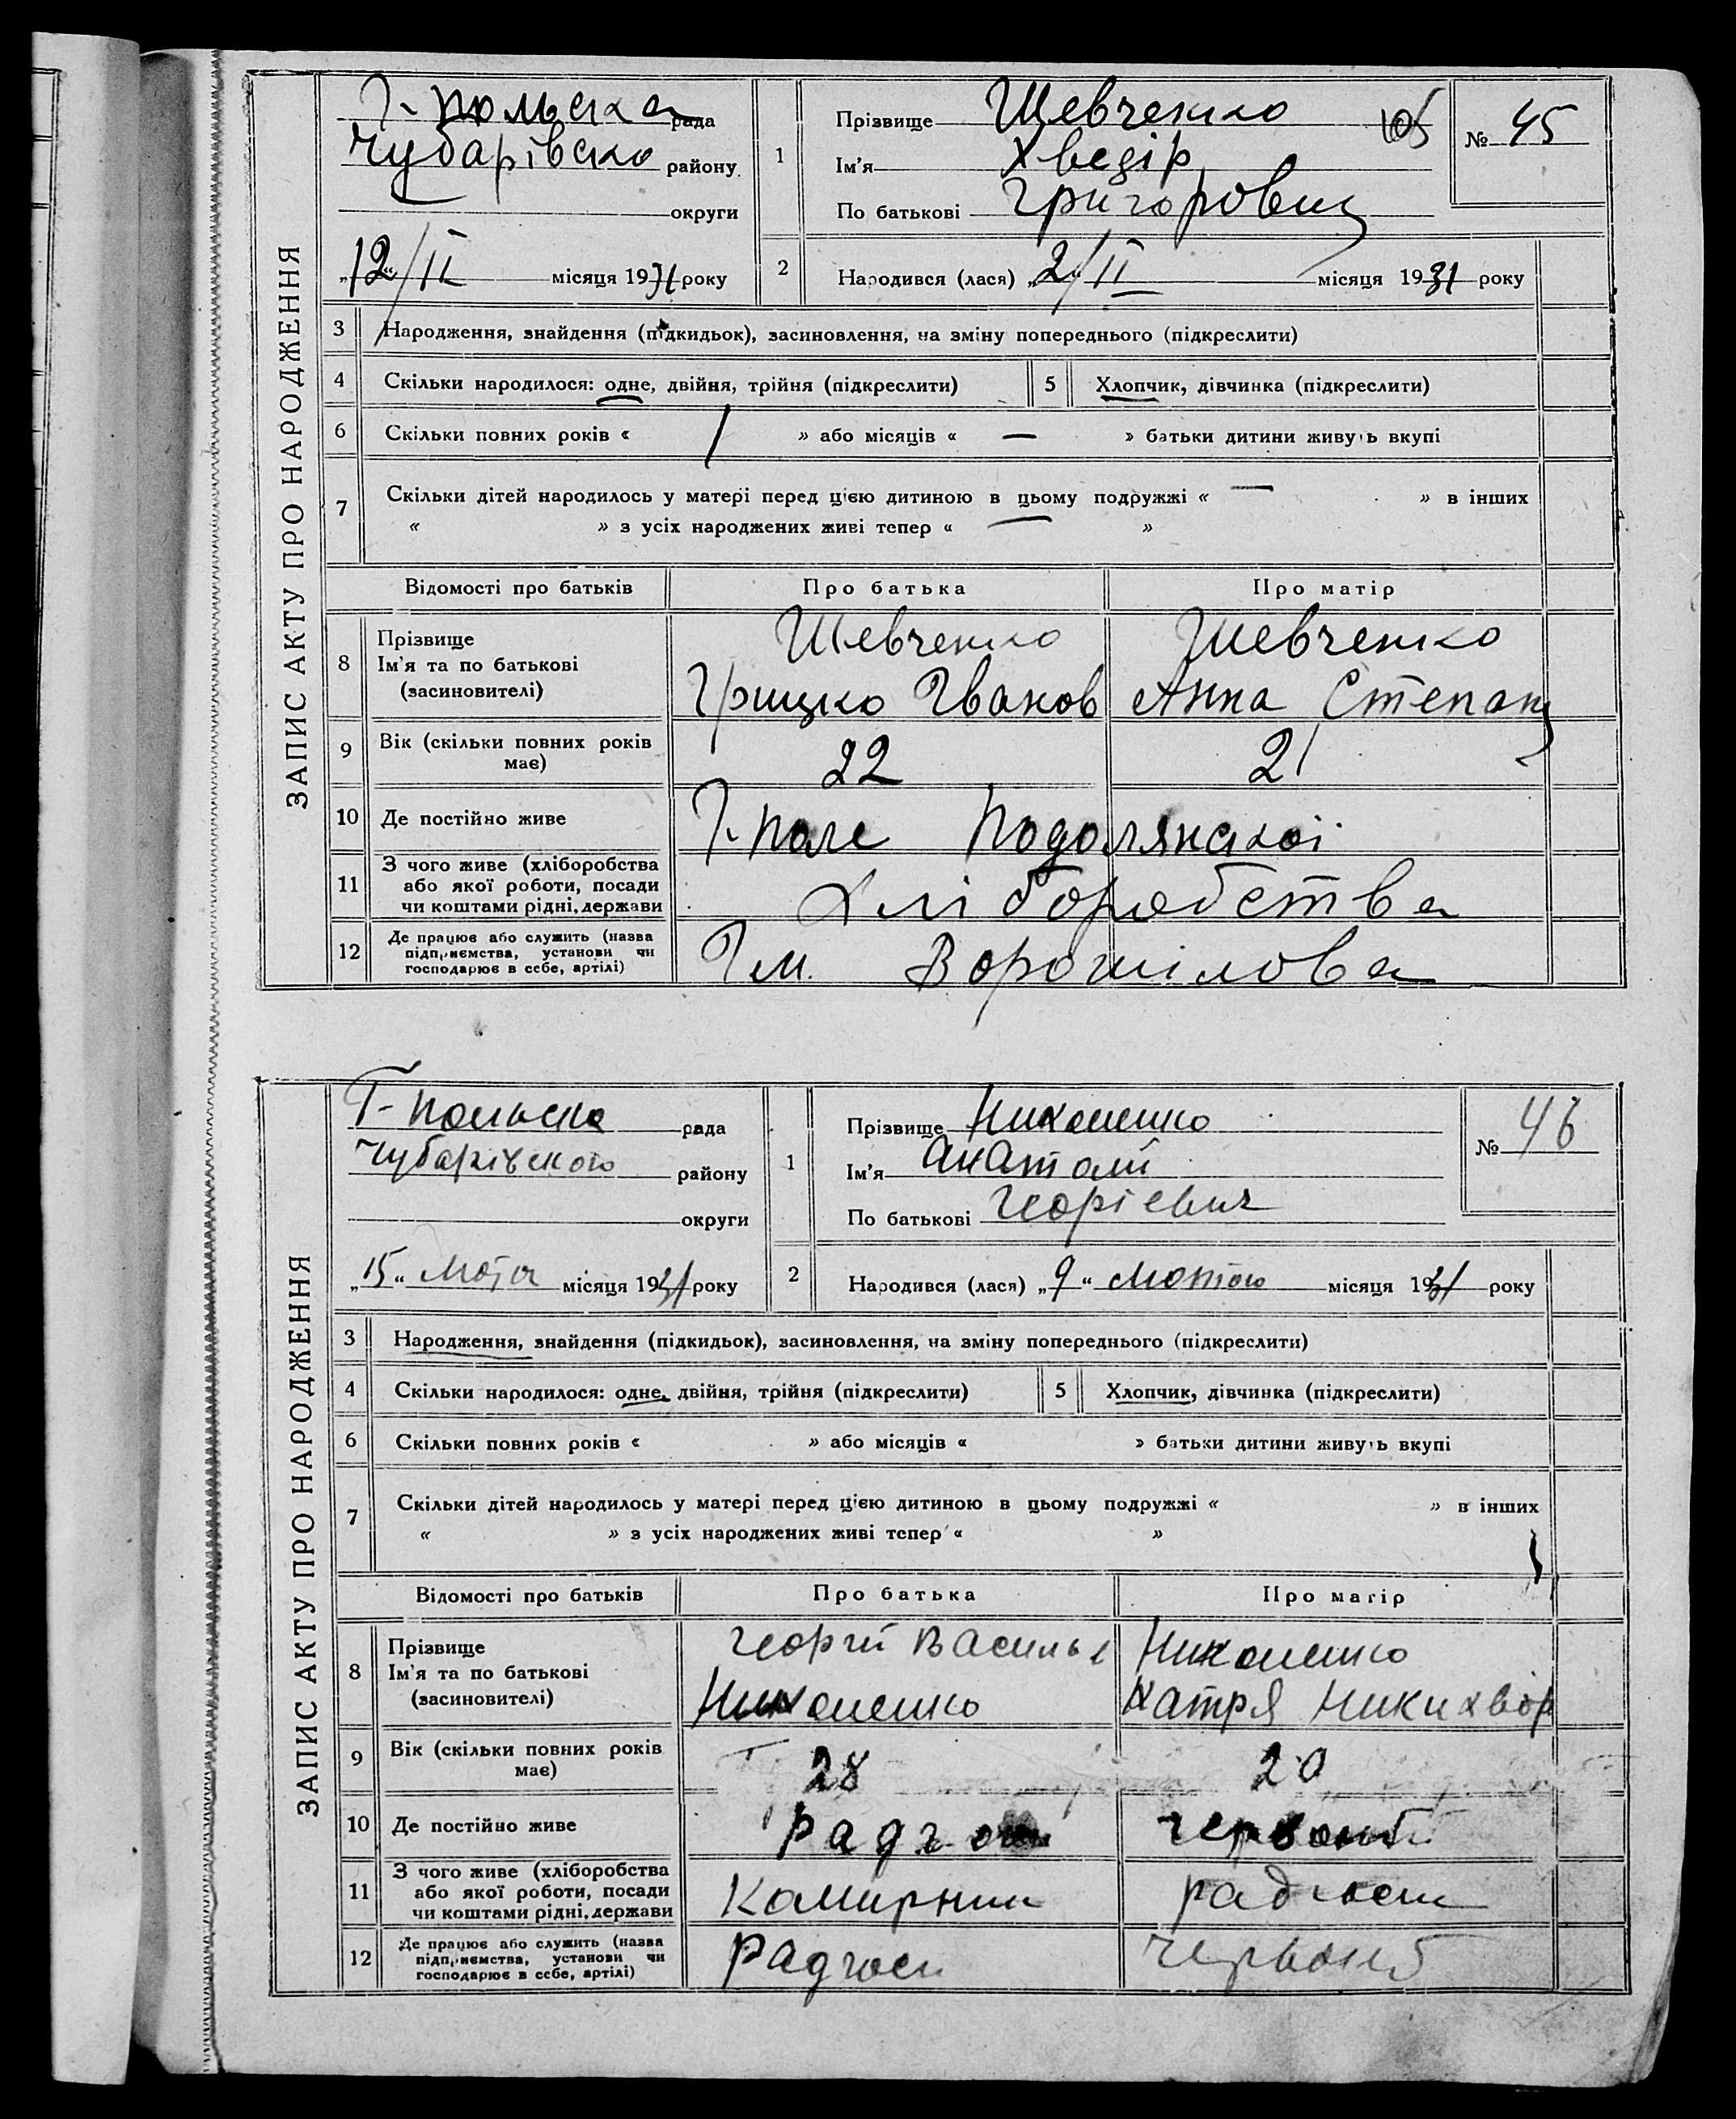 ЗАПИС АКТУ ПРО НАРОДЖЕННЯ
Г-польска рада
Чубарівско району
округи
„12“/II місяця 1931 року
1 Прізвище Шевченко
Ім'я Хведір
По батькові Григорович
№ 45
2 Народився (лася) „2“/II місяця 1931 року
3 Народження, знайдення (підкидьок), засиновлення, на зміну попереднього (підкреслити)
4 Скільки народилося: одне, двійня, трійня (підкреслити) 5 Хлопчик, дівчинка (підкреслити)
6 Скільки повних років « 1 » або місяців « — » батьки дитини живуть вкупі
7 Скільки дітей народилось у матері перед цією дитиною в цьому подружжі « — » в інших
« » з усіх народжених живі тепер « — »
Відомості про батьків Про батька Про матір
8 Прізвище Ім'я та по батькові (засиновителі)
Шевченко Шевченко
Грицко Іванов Анна Степан
9 Вік (скільки повних років має) 22 21
10 Де постійно живе Г-поле Подолянской
11 З чого живе (хліборобства або якої роботи, посади чи коштами рідні, держави Хліборобства
12 Де працює або служить (назва підприємства, установи чи господарює в себе, артілі) Ім. Ворошілова
ЗАПИС АКТУ ПРО НАРОДЖЕННЯ
Г-польска рада
Чубарівского району
округи
„15“ місяця 1931 року
1 Прізвище Николенко
Ім'я Анатолій
По батькові Георгієвич
№ 46
2 Народився (лася) „9“ лютого місяця 1931 року
3 Народження, знайдення (підкидьок), засиновлення, на зміну попереднього (підкреслити)
4 Скільки народилося: одне, двійня, трійня (підкреслити) 5 Хлопчик, дівчинка (підкреслити)
6 Скільки повних років « » або місяців « » батьки дитини живуть вкупі
7 Скільки дітей народилось у матері перед цією дитиною в цьому подружжі « » в інших
« » з усіх народжених живі тепер « »
Відомості про батьків Про батька Про матір
8 Прізвище Ім'я та по батькові (засиновителі)
Георгій Василье Николенко
Николенко Катря Никихвор
9 Вік (скільки повних років має) 28 20
10 Де постійно живе Радгосп червоний
11 З чого живе (хліборобства або якої роботи, посади чи коштами рідні, держави Камирник радгосп
12 Де працює або служить (назва підприємства, установи чи господарює в себе, артілі) Радгосп Червоний